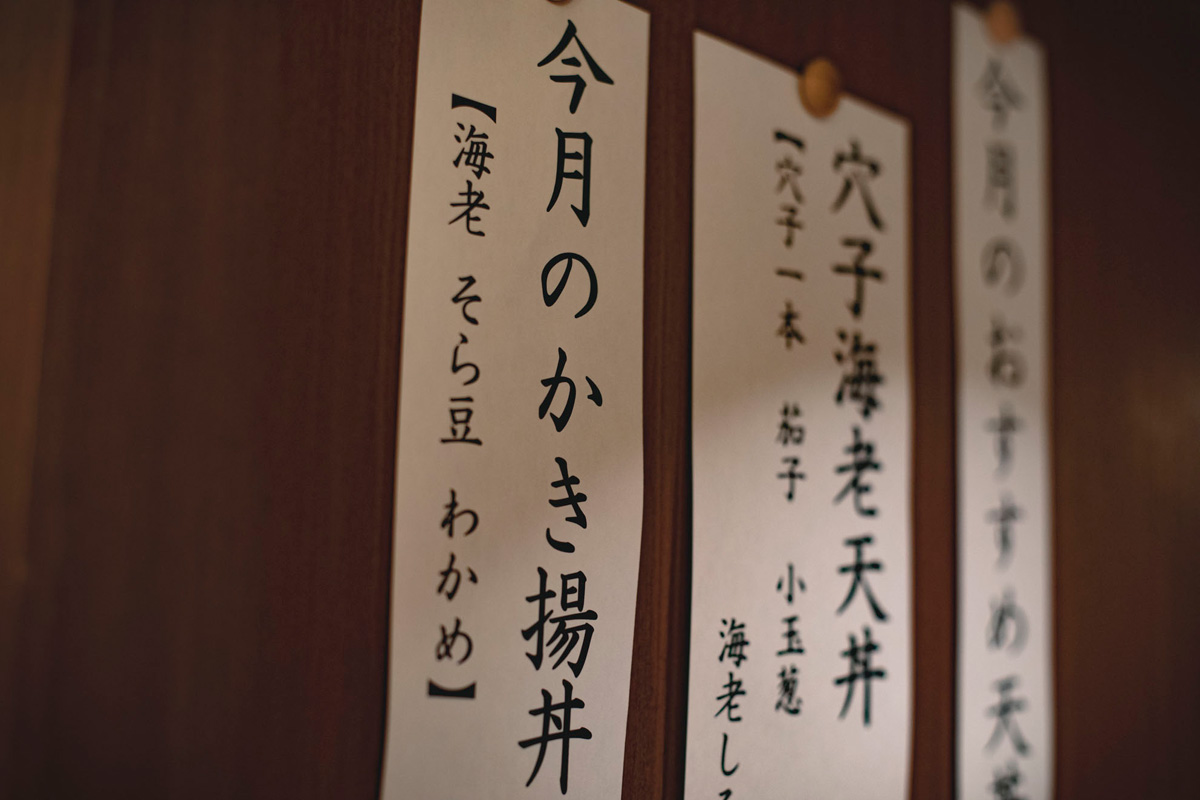 今月のおすすめ天
穴子海老天丼
【穴子一本 茄子 小玉葱
海老し
今月のかき揚丼
【海老 そら豆 わかめ】